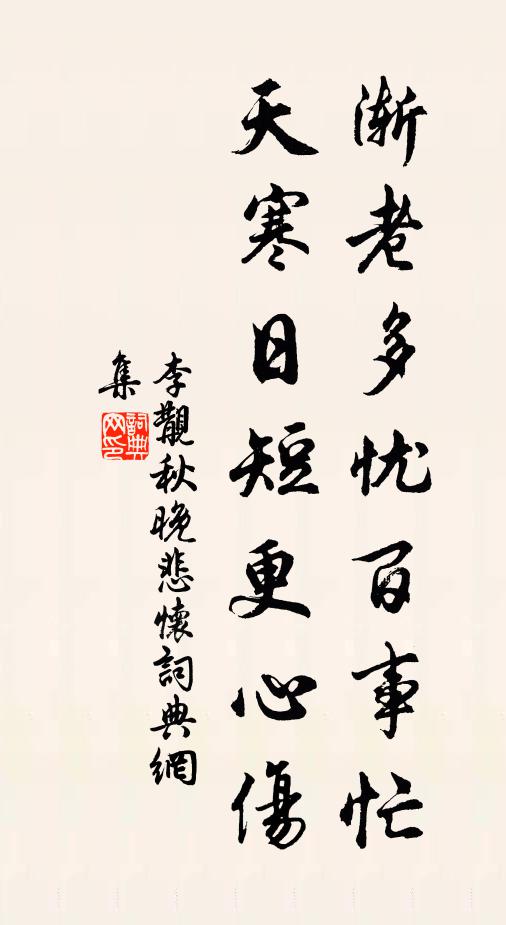 渐老多忧百事忙
天寒日短更心傷
李觏秋晚悲懷詞典網
集
詞典网印